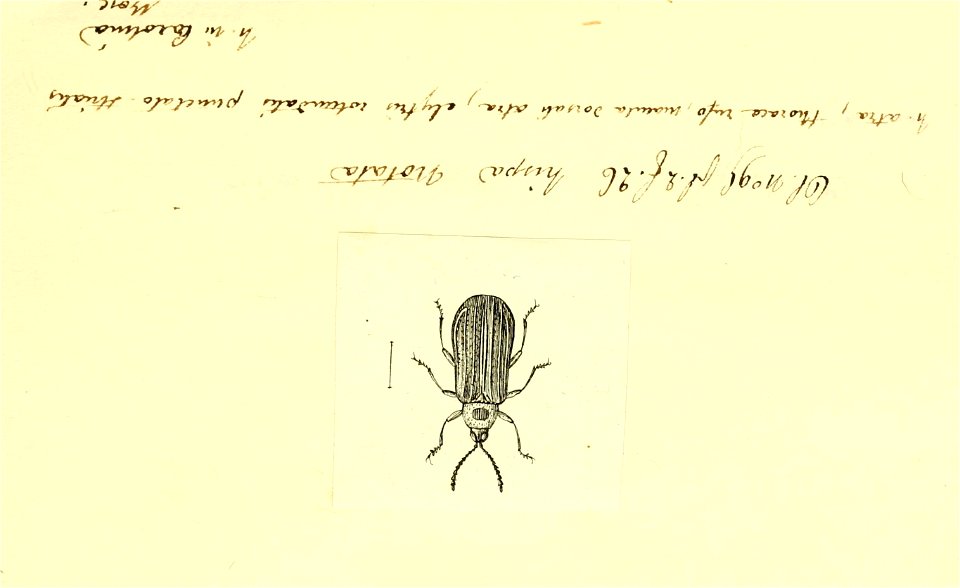 Ol. n° 95 pl. 2 f. 26 hispa Notata
h. atra, thorace rufo, macula dorsali atra, elytris rotundatis punctato striatis
h. in Carolina
Bosc.